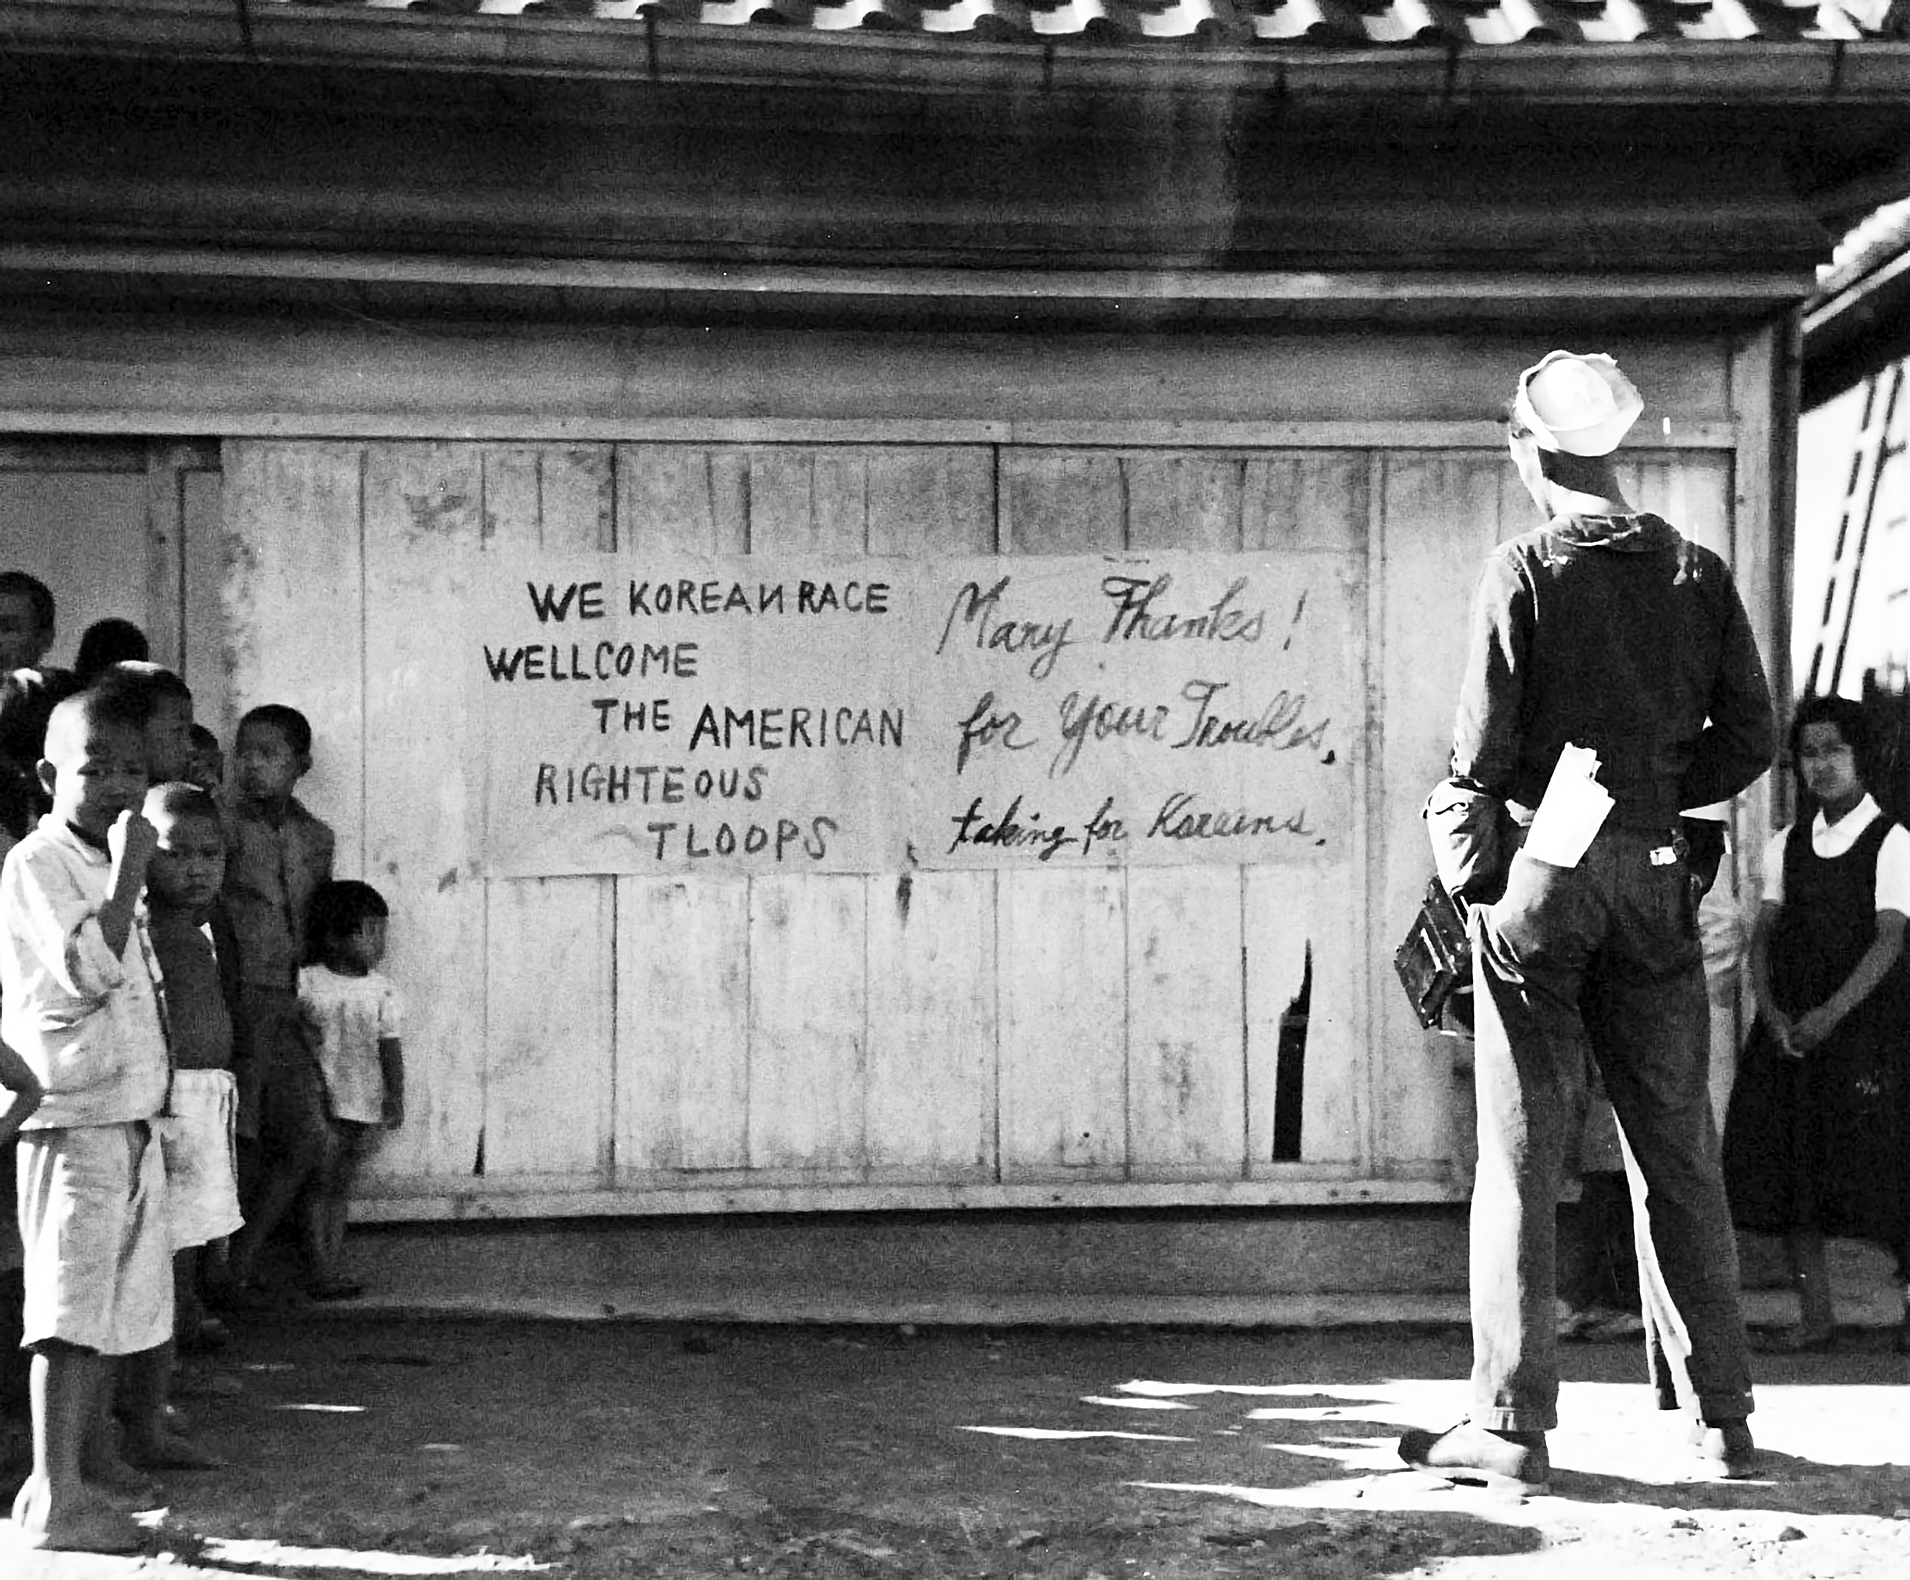 WE KOREAN RACE
WELLCOME
THE AMERICAN
RIGHTEOUS
TLOOPS
Mary Thanks!
for Your Troubles,
taking for Koreans.